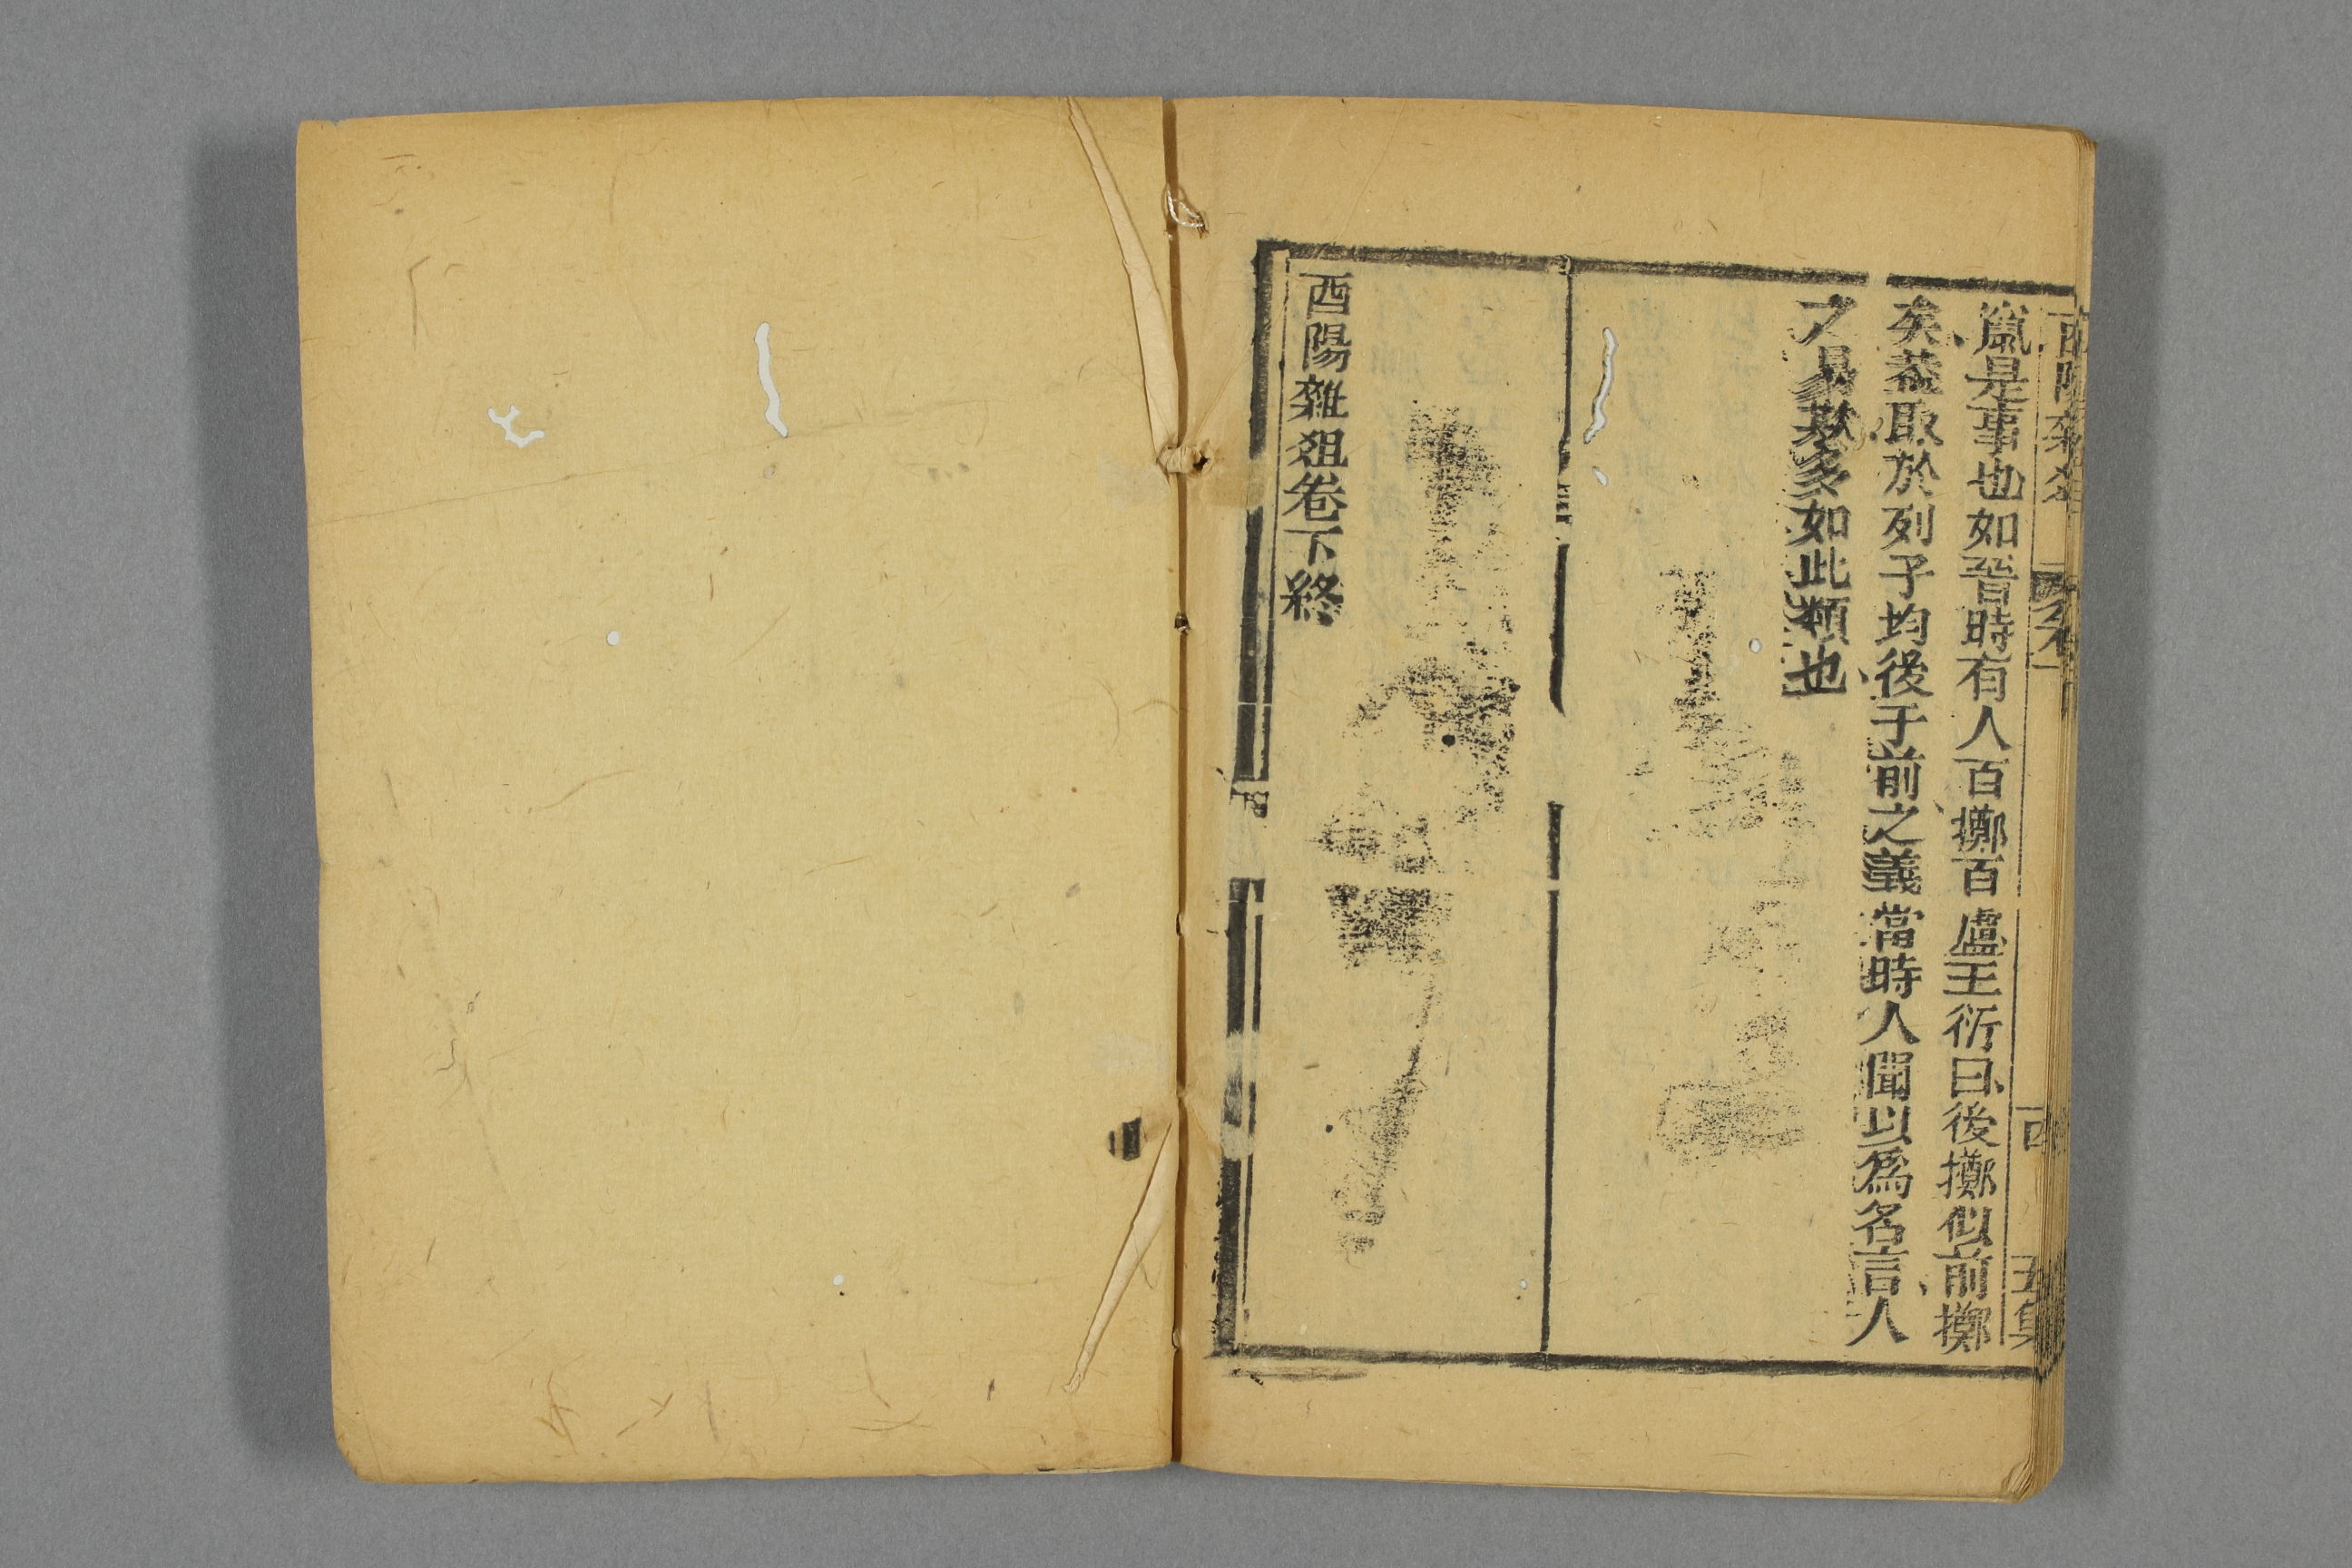 嵐是事也如晉時有人百擲百盧王衍曰後擲似前擲
矣葢取於列子均後于前之義當時人聞以爲名言人
之易欺多如此類也
酉陽雜俎卷下終